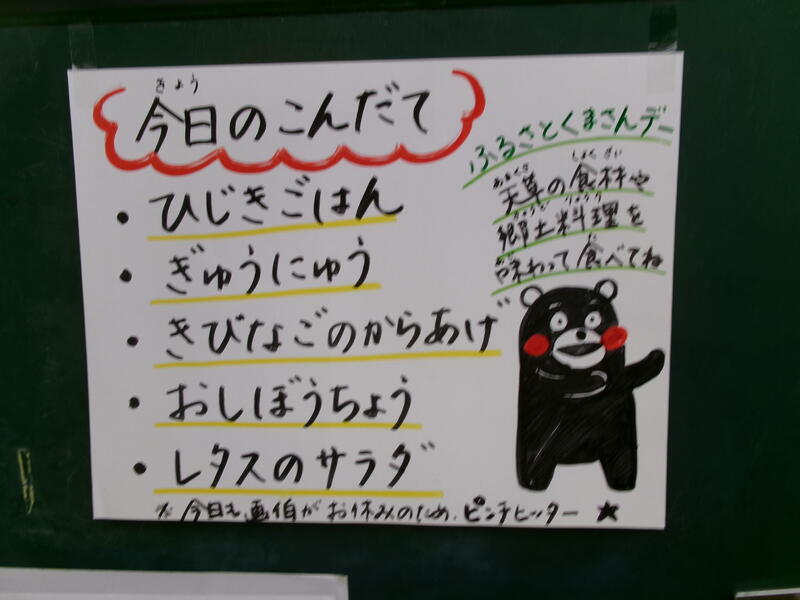 きょう
今日のこんだて
・ひじきごはん
・ぎゅうにゅう
・きびなごのからあげ
・おしぼうちょう
・レタスのサラダ
※今日も画伯がお休みのため、ピンチヒッター ★
ふるさとくまさんデー
あまくさ しょくざい
天草の食材や
きょうど りょうり
郷土料理を
あじ た
味わって食べてね